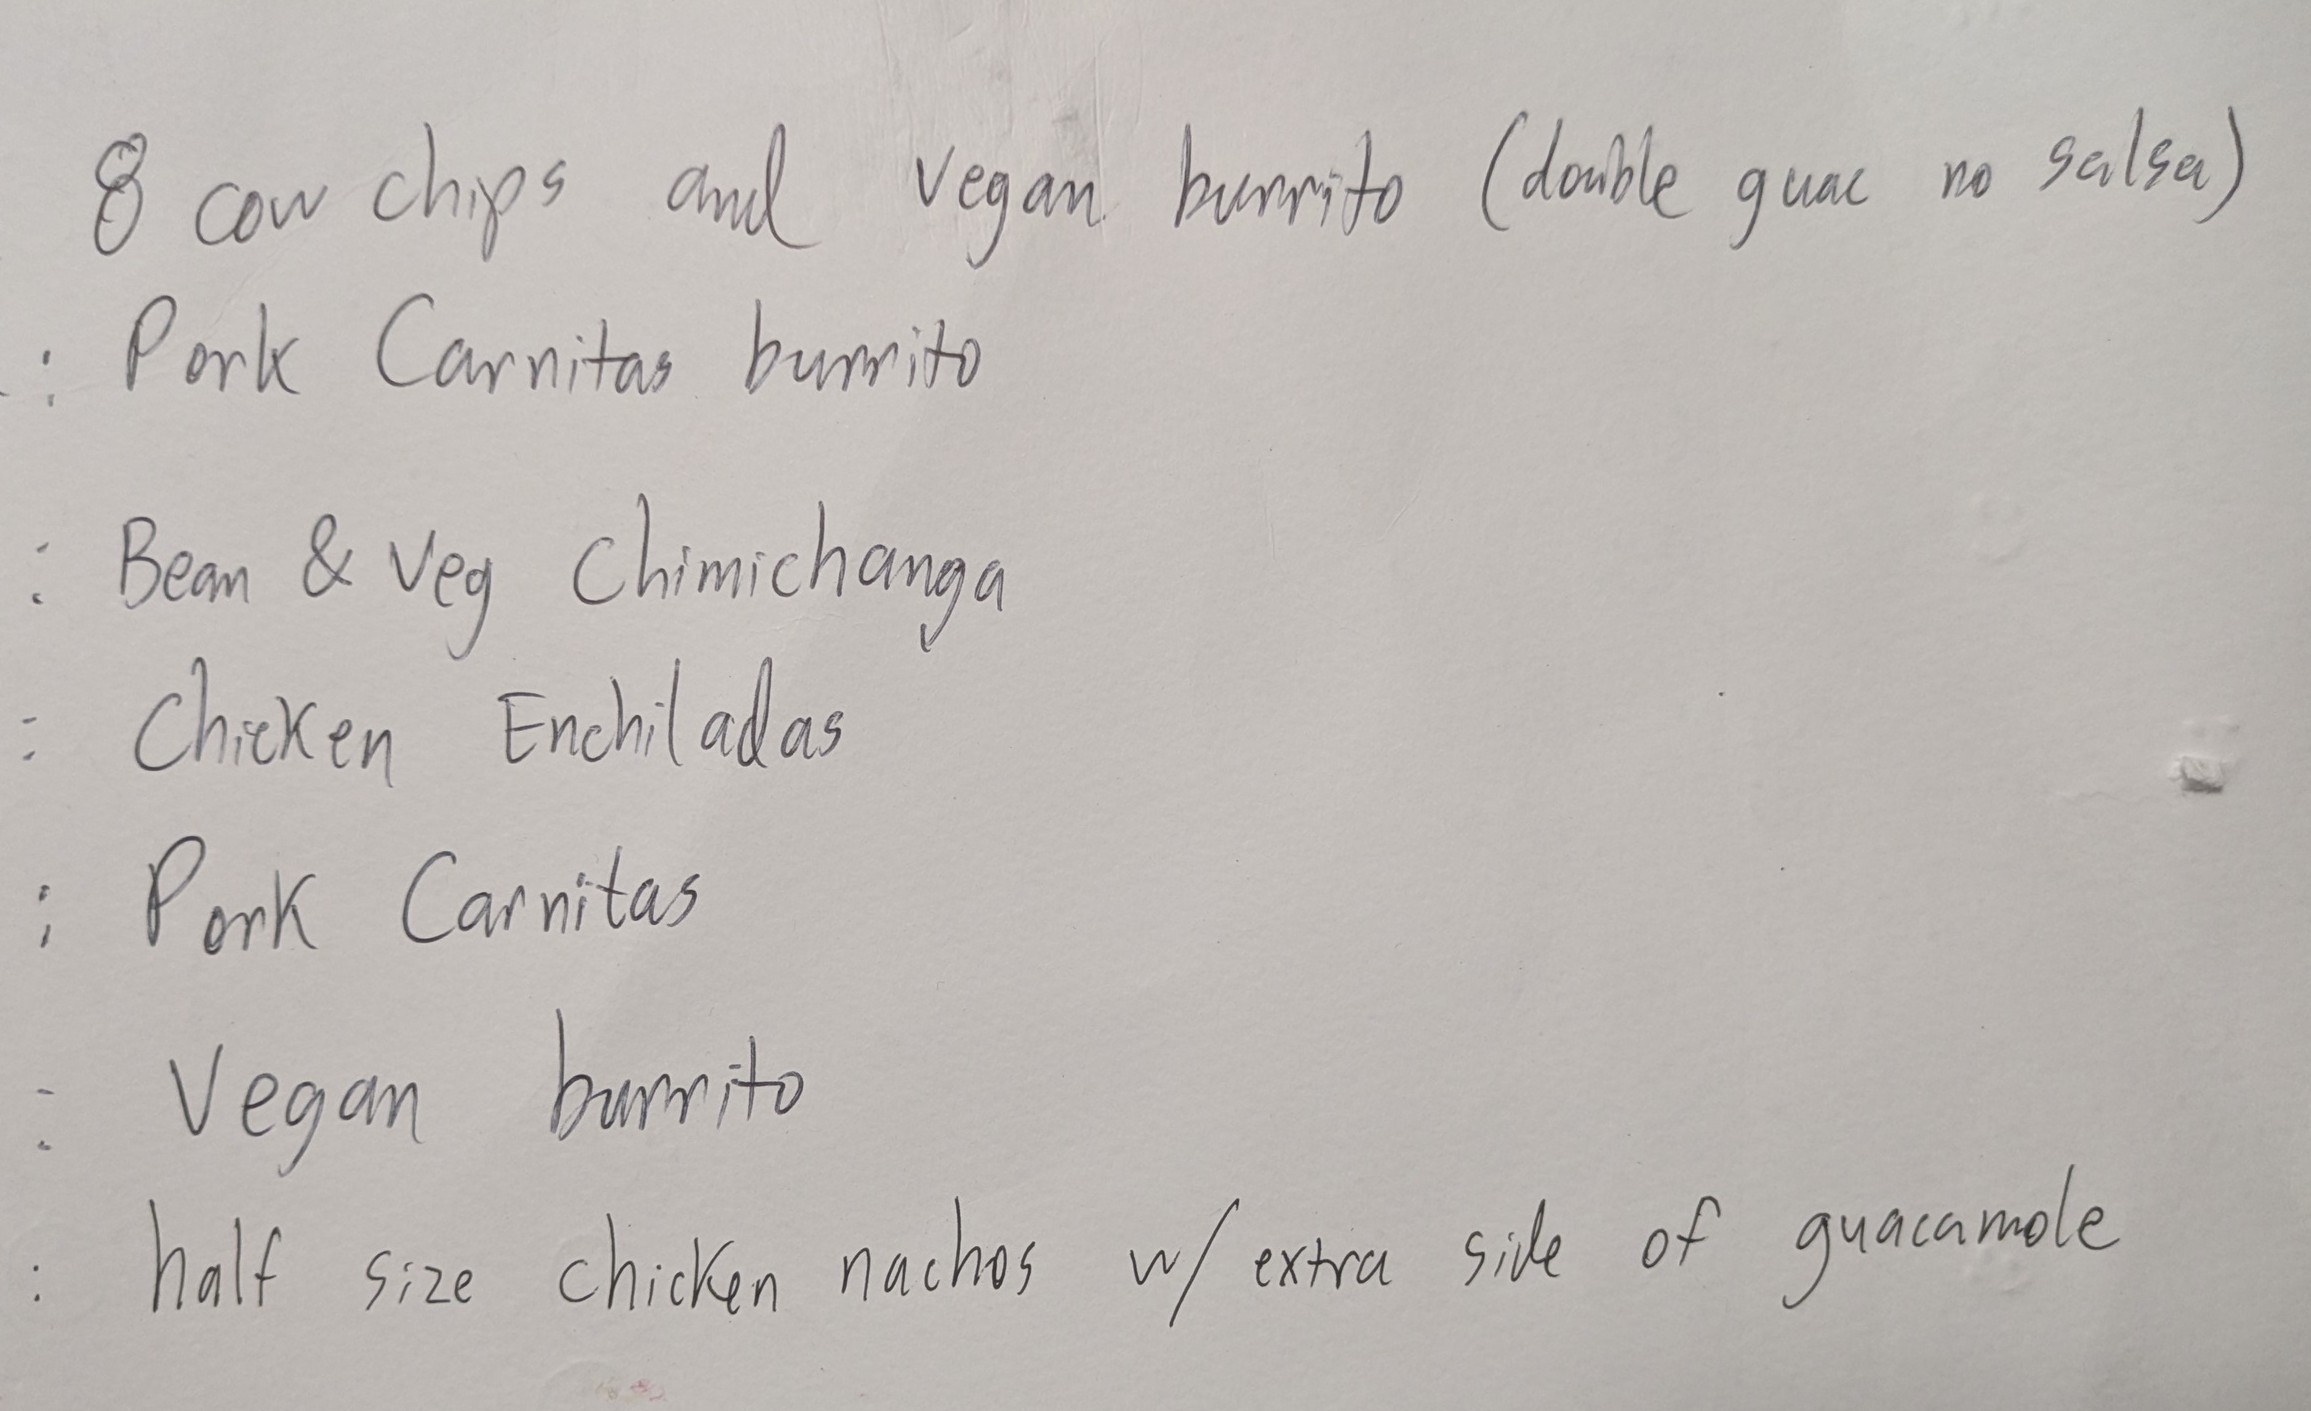 8 cow chips and vegan burrito (double guac no salsa)
: Pork Carnitas burrito
: Bean & Veg Chimichanga
: Chicken Enchiladas
: Pork Carnitas
: Vegan burrito
: half size chicken nachos w/ extra side of guacamole